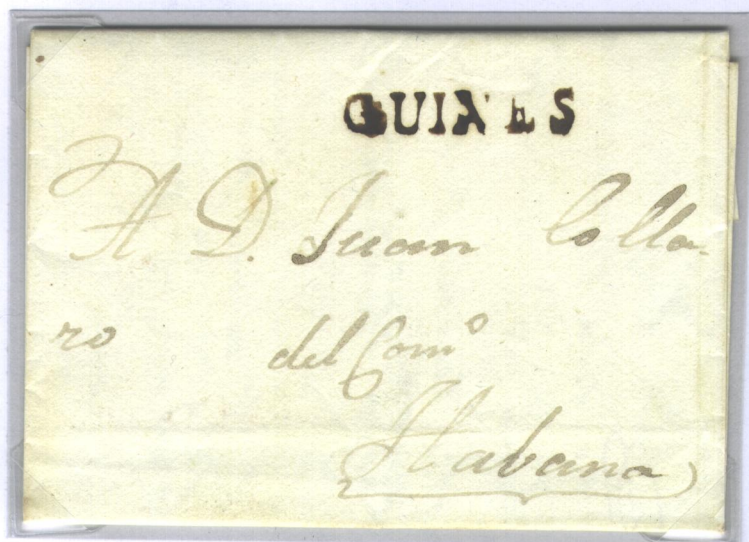 GUINES
A D. Juan Colla-
ro
del Com°
Habana